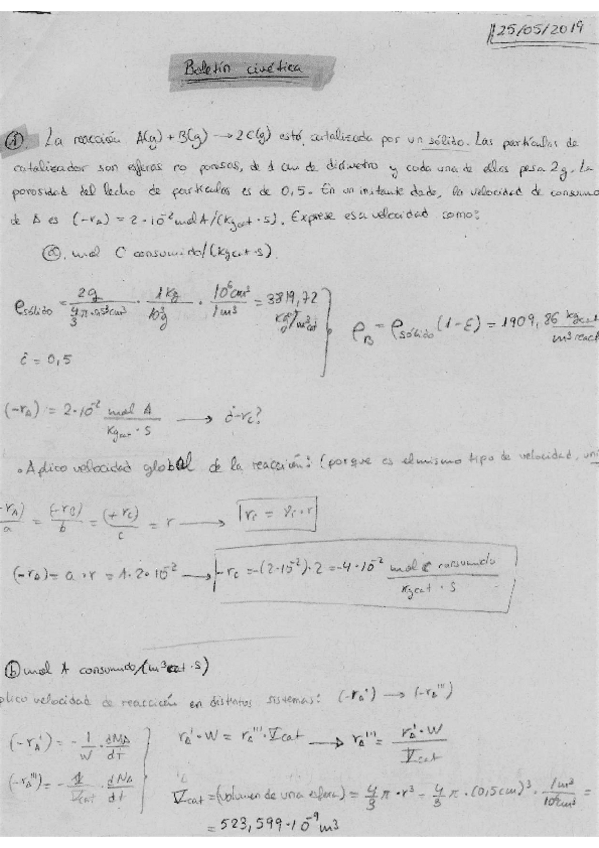 25/05/2019
Boletín cinética
① La reacción A(g) + B(g) → 2C(g) está catalizada por un sólido. Las partículas de
catalizador son esferas no porosas, de 1 cm de diámetro y cada una de ellas pesa 2g. La
porosidad del lecho de partículas es de 0,5. En un instante dado, la velocidad de consumo
de A es (-rA) = 2·10⁻² mol A/(kgcat·s). Exprese esa velocidad como:
ⓐ. mol C consumido/(kgcat·s).
ρsólido = 2g / (4/3 π·0,5³cm³) · 1kg/10³g · 10⁶cm³/1m³ = 3819,72 kgcat/m³cat
ρB = ρsólido (1-ε) = 1909,86 kgcat/m³react
ε = 0,5
(-rA) = 2·10⁻² mol A / kgcat·s → ¿-rC?
• Aplico velocidad global de la reacción: (porque es el mismo tipo de velocidad,
-rA)/a = (-rB)/b = (+rC)/c = r → ri = νi·r
(-rA) = a·r = 1·2·10⁻² → -rC = -(2·10⁻²)·2 = -4·10⁻² mol C consumido / kgcat·s
ⓑ mol A consumido/(m³cat·s)
plico velocidad de reacción en distintos sistemas: (-rA') → (-rA''')
(-rA') = -1/W · dNA/dt
rA'·W = rA'''·Vcat → rA''' = rA'·W / Vcat
(-rA''') = -1/Vcat · dNA/dt
Vcat = (volumen de una esfera) = 4/3 π·r³ = 4/3 π·(0,5cm)³ · 1m³/10⁶cm³ =
= 523,599·10⁻⁹ m³